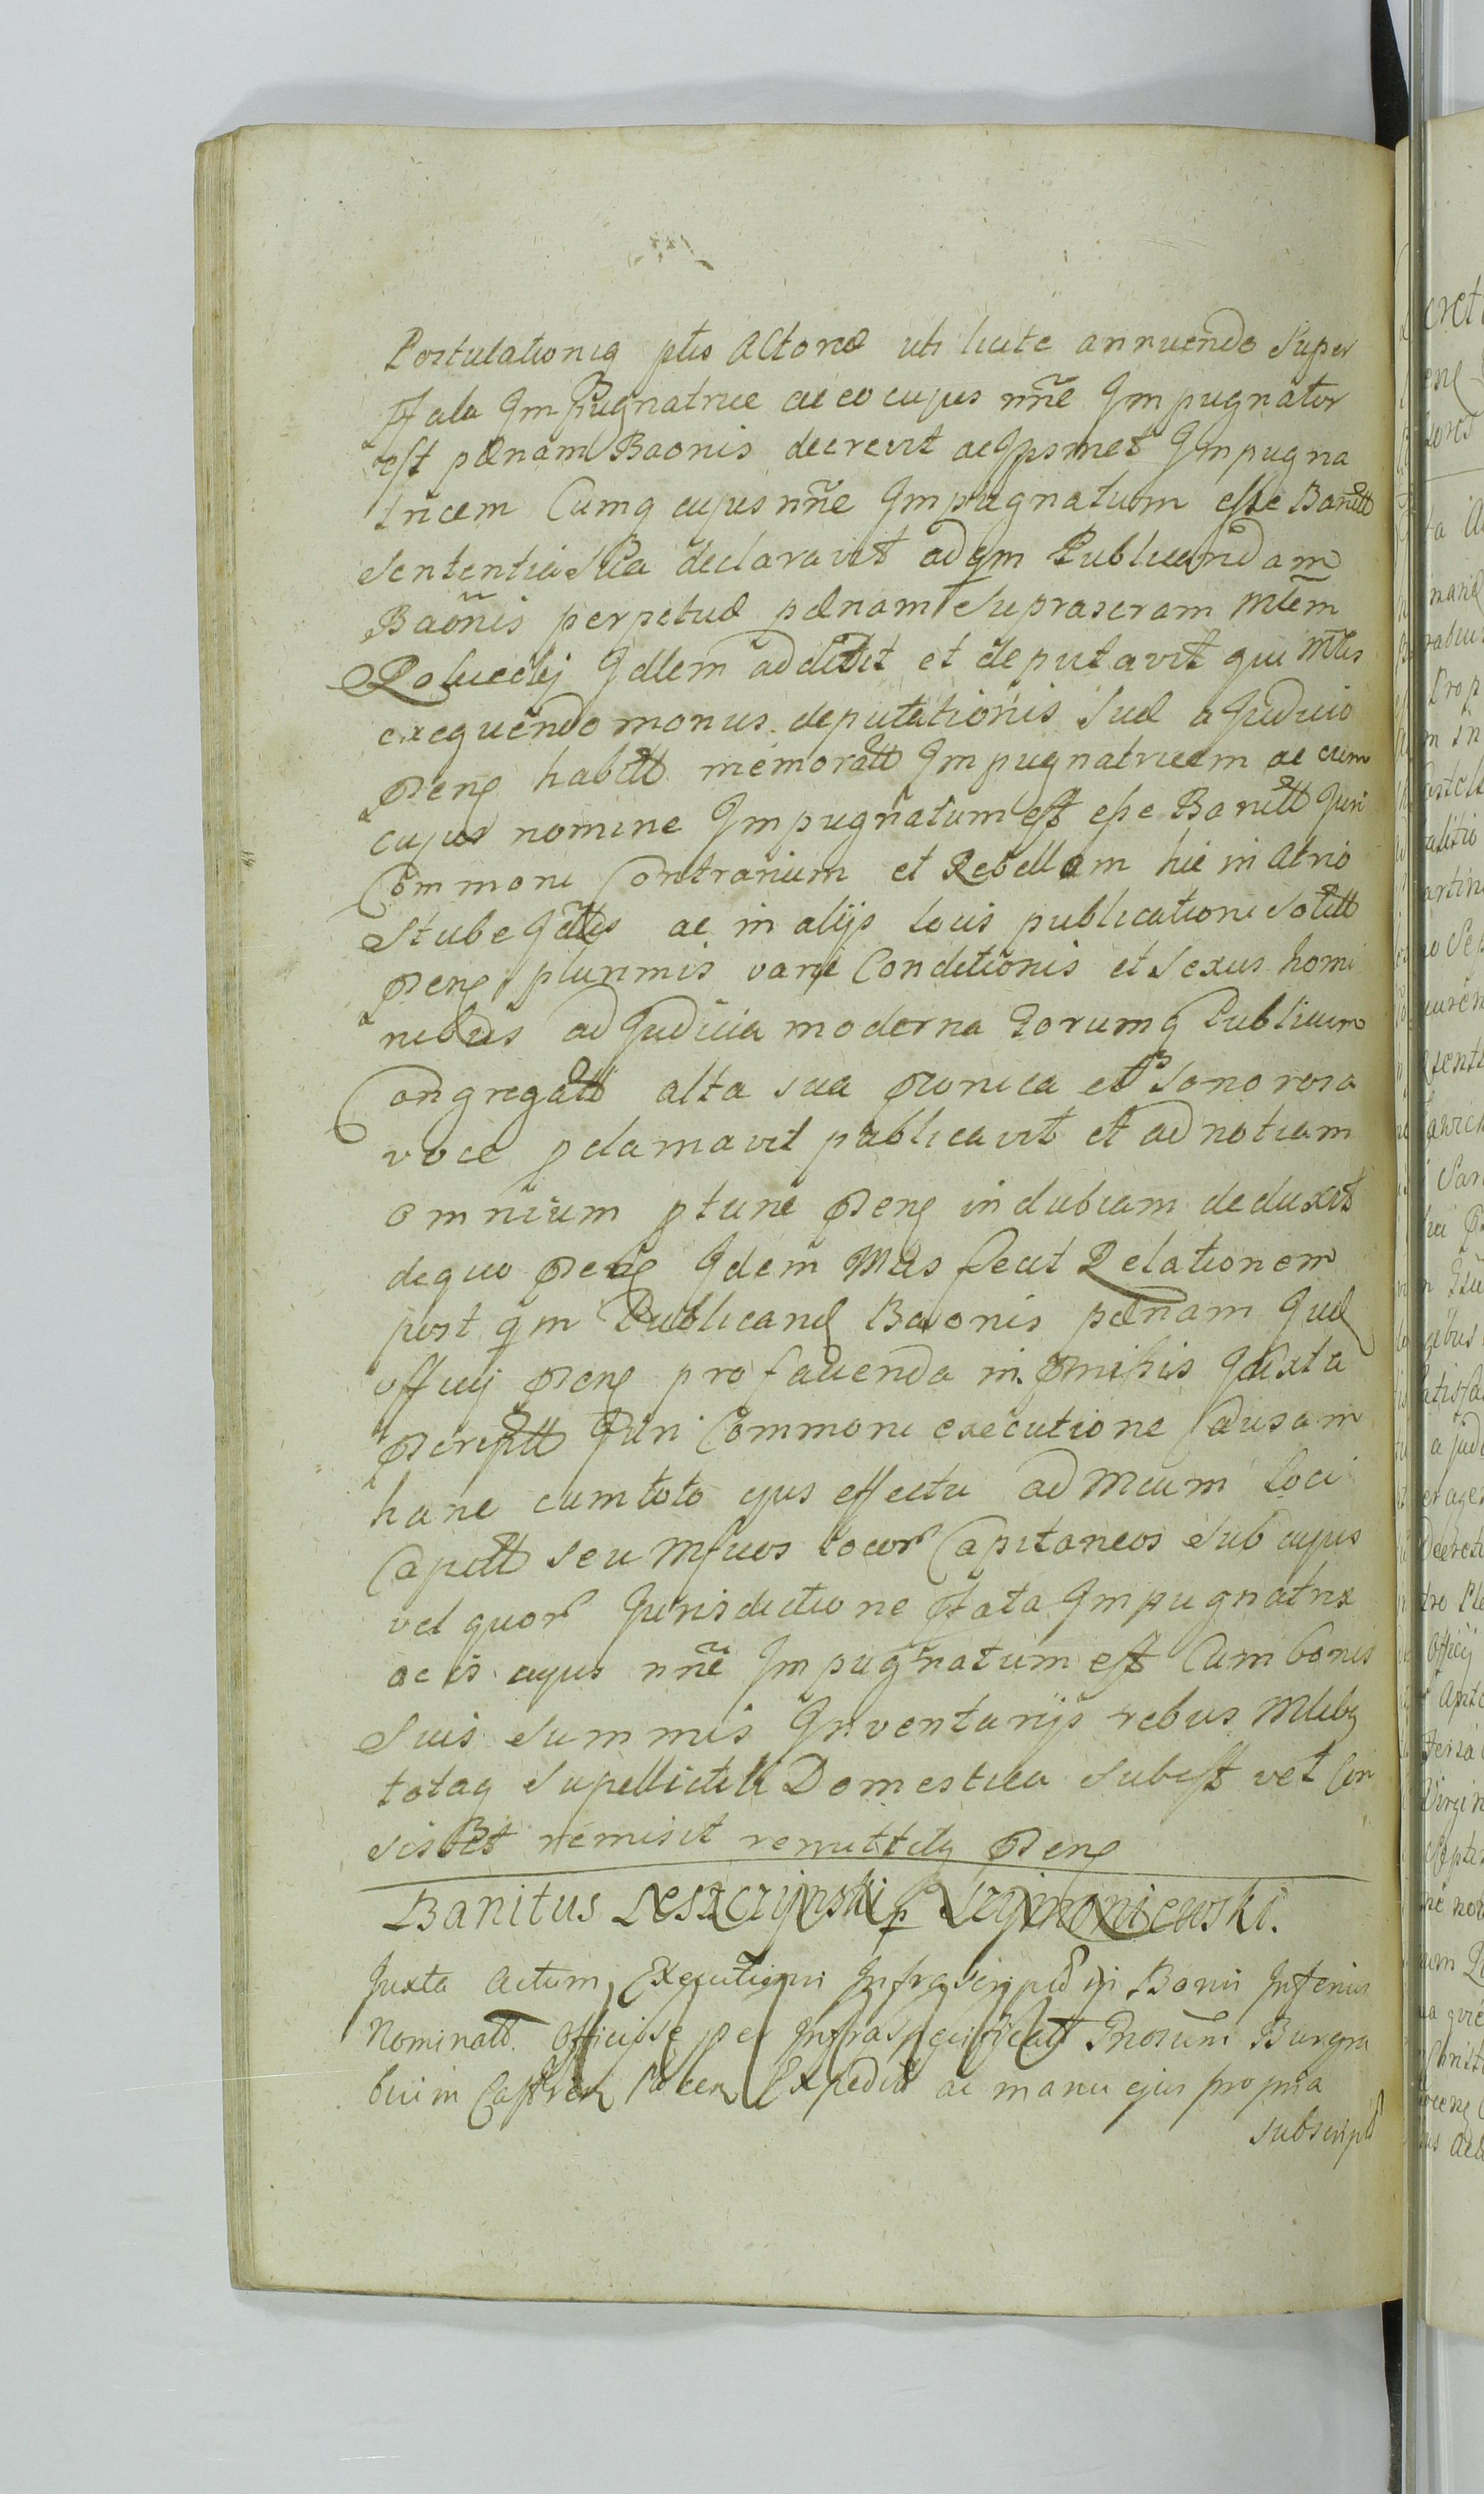 Postulationiq ptis Actoreæ uti licite annuendo super
Ptata Impugnatrice ac eo cujus nñe Impugnator
est pænam Baonis decrevit ac Ipsmet Impugna
tricem Cumq cujus nñe Impugnatum esse Banitt
Sententia sua declaravit ad qm Publicandam
Baõnis perpetuæ pænam Suprascram Mlem
Idllem addidit et deputavit qui Mtis
exequendo monus deputationis suæ a Judicio
Pseng habitt memoratt Impugnatricem ac cum
cujus nomine Impugnatum est esse Banitt Juri
Commoni Contrarium et Rebellem hic in Atrio
Stube Jdlis ac in alijs locis publicationi solitt
Pseng plurimis varij Conditionis et Sexus homi
nibus ad Judicia moderna Forumq Publicum
Congregatt alta sua Pconica et Sonorosa
voce pclamavit publicavit et ad notiam
omnium ptunc Pseng indubiam deduxit
de quo Pseng Idem Mtis fecit Relationem
post qm Publicand Baonis pænam Jud
officij Pseng pro facienda in Pmissis Juxta
Pscriptt Juri Commoni executione Causam
hanc cum toto ejus effectu ad Mcum Loci
Capitt seu Mficos locor Capitaneos sub cujus
vel quor Jurisdictione Ptata Impugnatrix
ac is cujus nñe Impugnatum est Cum bonis
Suis Summis Inventarijs rebus Mlibq
totaq Supellictili Domestica subest vel Con
sistet remisit remittitq Pseng
Banitus Leszczynski p Szymoniewski.
Juxta Actum Executionis Infrascript in Bonis Inferius
Nominatt. Officiose per Infraspecificatt Gnosum Burgra
bium Castren Expedit ac manu ejus propria
subscript